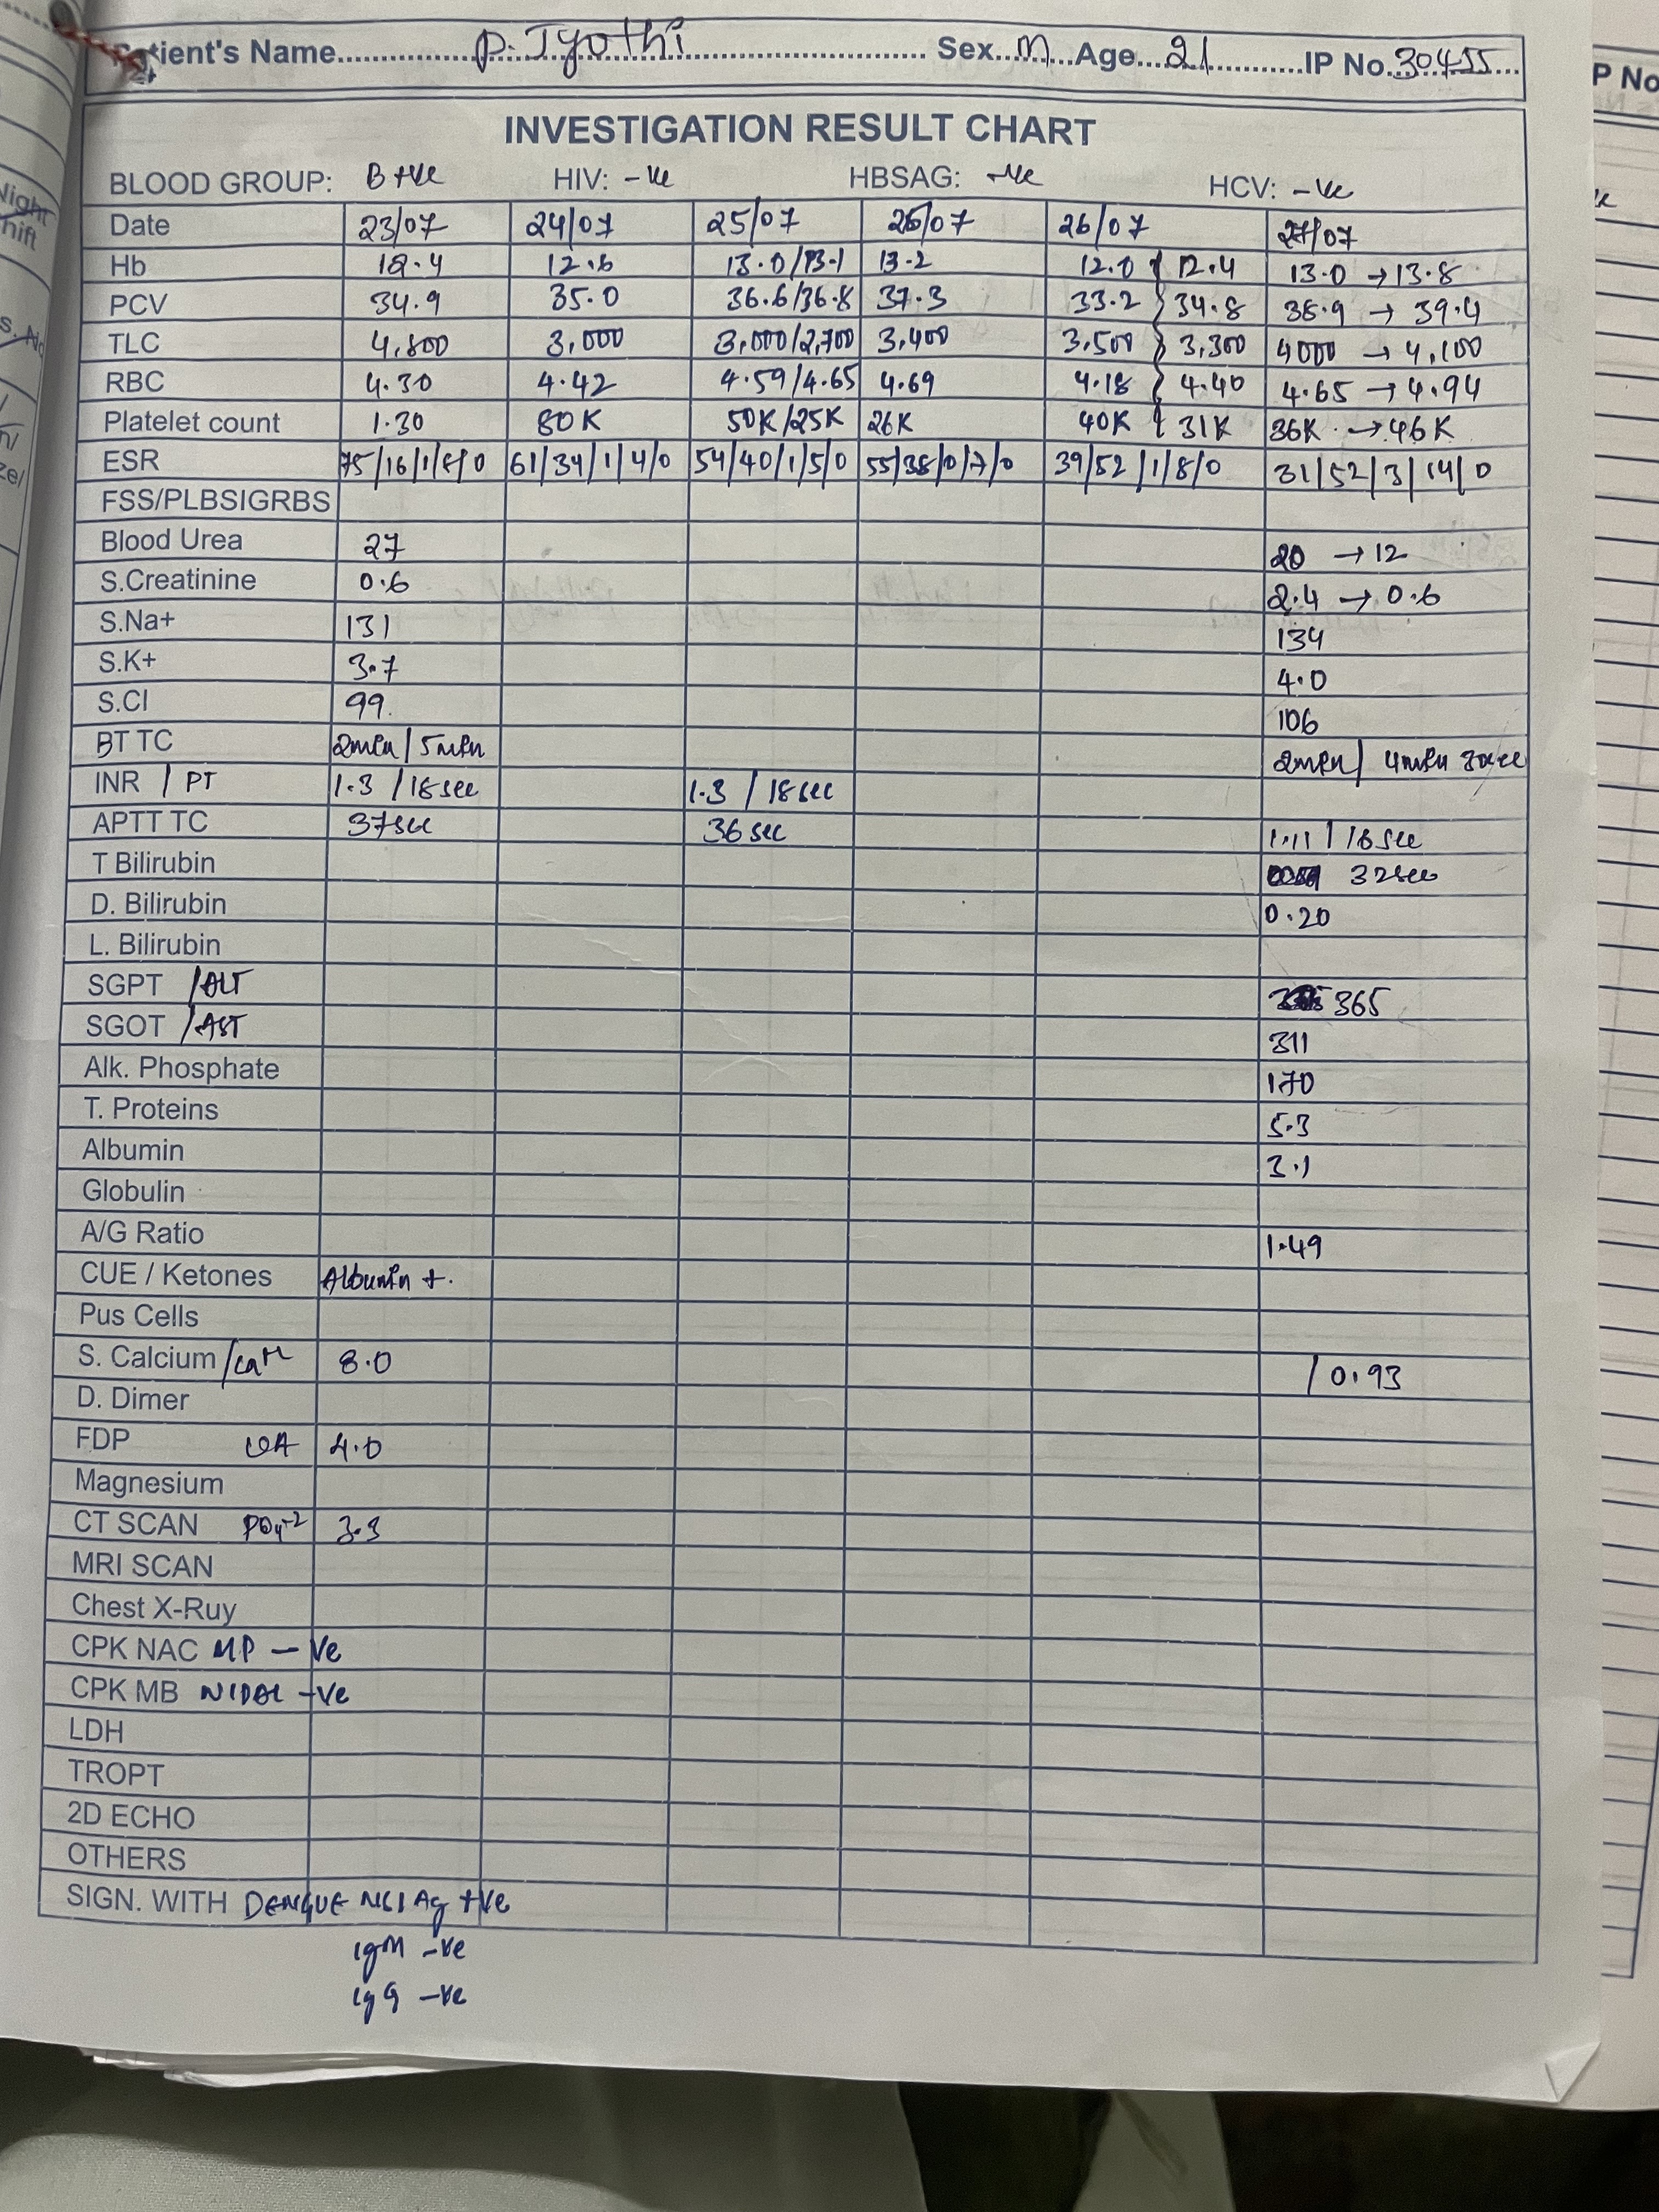 Patient's Name P. Jyothi Sex M Age 21 IP No. 30455
P No
INVESTIGATION RESULT CHART
BLOOD GROUP: B +ve HIV: -ve HBSAG: -ve HCV: -ve
Date 23/07 24/07 25/07 26/07 26/07 27/07
Hb 12.4 12.6 13.0/13.1 13.2 12.0 12.4 13.0 → 13.8
PCV 34.9 35.0 36.6/36.8 37.3 33.2 34.8 38.9 → 39.4
TLC 4,800 3,000 3,000/2,700 3,400 3,500 3,300 4000 → 4,100
RBC 4.30 4.42 4.59/4.65 4.69 4.18 4.40 4.65 → 4.94
Platelet count 1.30 80K 50K/25K 26K 40K 31K 36K → 46K
ESR 75/16/1/8/0 61/34/1/4/0 54/40/1/5/0 55/38/0/7/0 39/52/1/8/0 31/52/3/14/0
FSS/PLBSIGRBS
Blood Urea 27 20 → 12
S.Creatinine 0.6 2.4 → 0.6
S.Na+ 131 134
S.K+ 3.7 4.0
S.Cl 99. 106
BT TC 2min/5min 2min/ 4min 30sec
INR / PT 1.3 / 18sec 1.3 / 18sec
APTT TC 37sec 36 sec 1.11 / 16 sec
T Bilirubin 32sec
D. Bilirubin 0.20
L. Bilirubin
SGPT /ALT 365
SGOT /AST 311
Alk. Phosphate 170
T. Proteins 5.3
Albumin 3.1
Globulin
A/G Ratio 1.49
CUE / Ketones Albumin +.
Pus Cells
S. Calcium /ca++ 8.0 / 0.93
D. Dimer
FDP UA 4.0
Magnesium
CT SCAN PO4-2 3.3
MRI SCAN
Chest X-Ruy
CPK NAC MP - Ve
CPK MB WIDAL -Ve
LDH
TROPT
2D ECHO
OTHERS
SIGN. WITH DENGUE NS1 Ag +Ve
IgM -Ve
IgG -Ve